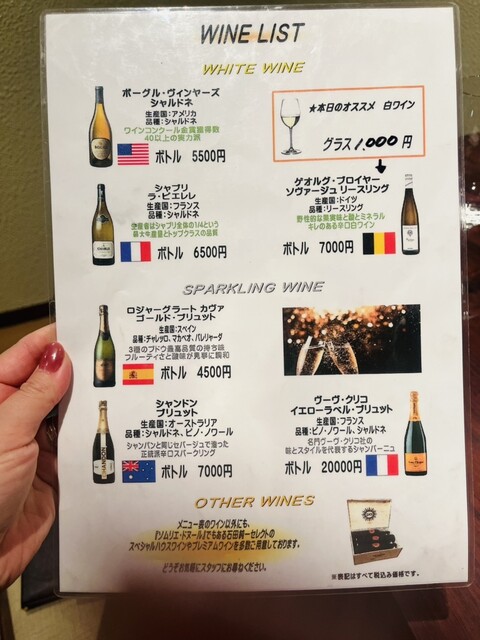 WINE LIST
WHITE WINE
ボーグル・ヴィンヤーズ
シャルドネ
生産国:アメリカ
品種:シャルドネ
ワインコンクール金賞獲得数
40以上の実力派
ボトル 5500円
★本日のオススメ 白ワイン
グラス 1,000 円
シャブリ
ラ・ピエレレ
生産国:フランス
品種:シャルドネ
生産者はシャブリ全体の1/4という
最大生産量とトップクラスの品質
ボトル 6500円
ゲオルグ・ブロイヤー
ソヴァージュ リースリング
生産国:ドイツ
品種:リースリング
野性的な果実味と酸とミネラル
キレのある辛口白ワイン
ボトル 7000円
SPARKLING WINE
ロジャーグラート カヴァ
ゴールド・ブリュット
生産国:スペイン
品種:チャレッロ、マカベオ、パレリャーダ
3種のブドウ最高品質の持ち味
フルーティさと酸味が見事に調和
ボトル 4500円
シャンドン
ブリュット
生産国:オーストラリア
品種:シャルドネ、ピノ・ノワール
シャンパンと同じセパージュで造った
正統派辛口スパークリング
ボトル 7000円
ヴーヴ・クリコ
イエローラベル・ブリュット
生産国:フランス
品種:ピノ・ノワール、シャルドネ
名門ヴーヴ・クリコ社の
味とスタイルを代表するシャンパーニュ
ボトル 20000円
OTHER WINES
メニュー表のワイン以外にも、
『ソムリエ・ドヌール』でもある石田純一セレクトの
スペシャルハウスワインやプレミアムワインを多数ご用意しております。
どうぞお気軽にスタッフにお尋ねください。
※表記はすべて税込み価格です。